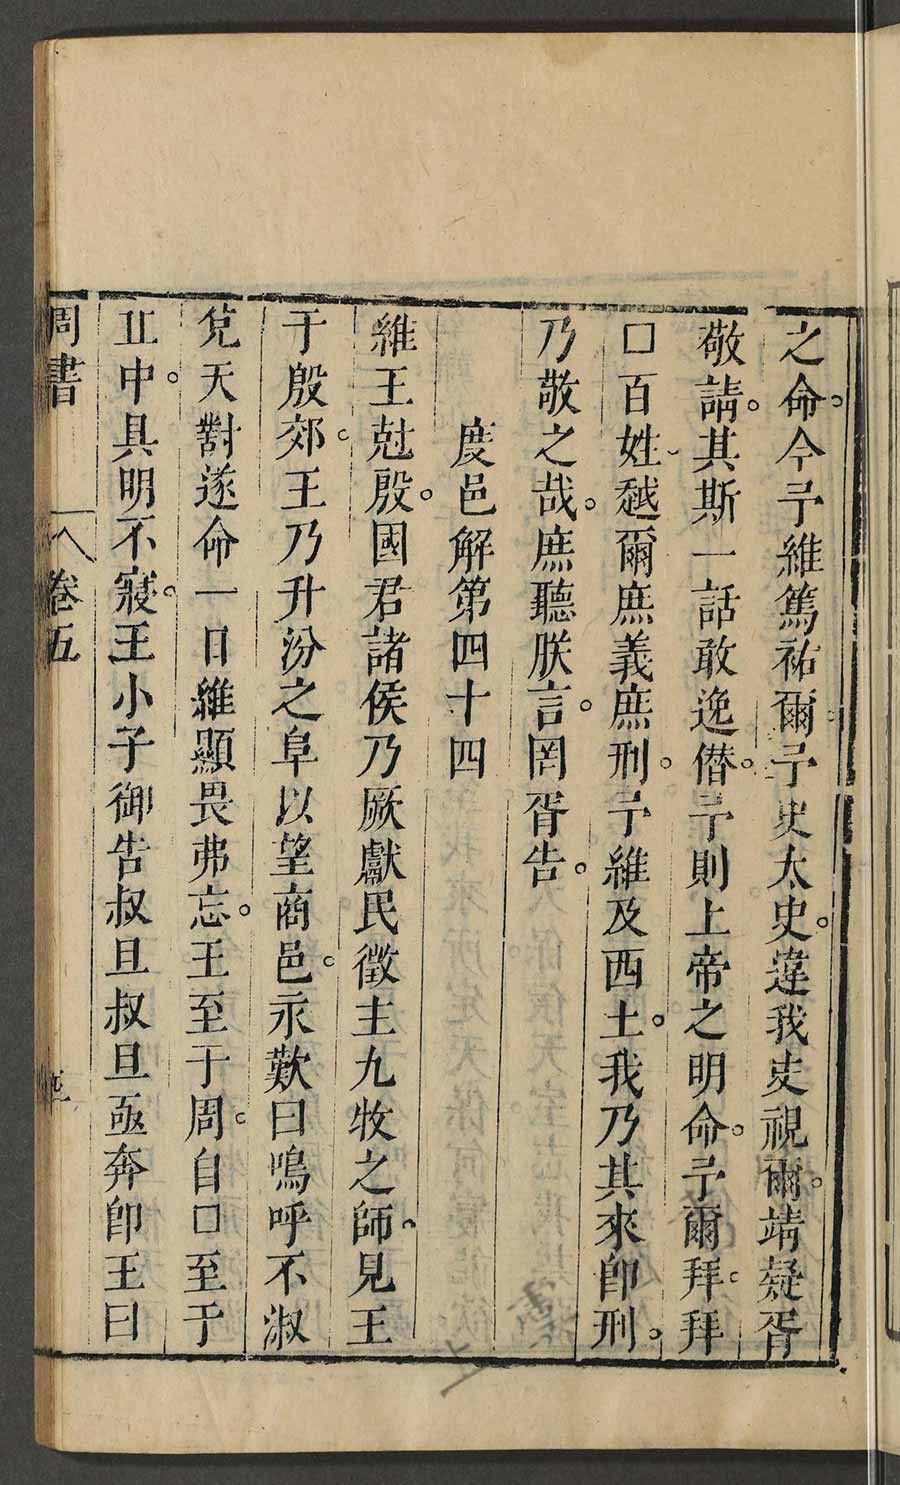 之命。今予維篤祐爾。予史太史。違我史視爾。靖疑胥
敬請。其斯一話敢逸僣。予則上帝之明命。予爾拜。拜
□百姓、越爾庶義庶刑。予維及西土。我乃其來卽刑。
乃敬之哉。庶聽朕言。罔胥告。
度邑解第四十四
維王尅殷。國君諸侯乃厥獻民徵主九牧之師。見王
于殷郊。王乃升汾之阜以望商邑。永歎曰嗚呼不淑
兌天對遂命一日維顯畏弗忘。王至于周。自□至于
丘中。具明不寢。王小子御告叔旦叔旦亟奔卽王曰
周書 卷五